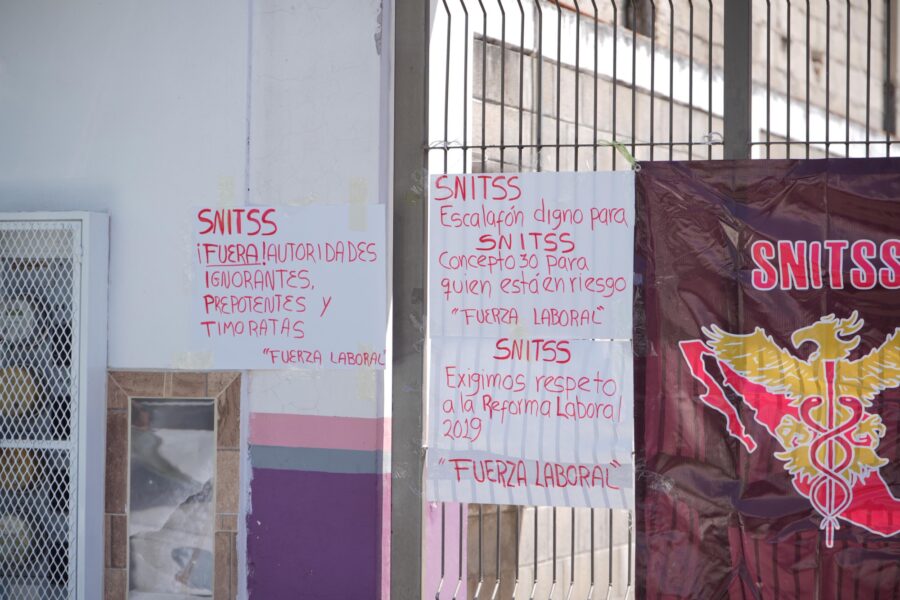 SNITSS
¡FUERA! AUTORIDADES
IGNORANTES,
PREPOTENTES Y
TIMORATAS
"FUERZA LABORAL"
SNITSS
Escalafón digno para
SNITSS
Concepto 30 para
quien está en riesgo
"FUERZA LABORAL"
SNITSS
Exigimos respeto
a la Reforma Laboral
2019
"FUERZA LABORAL"
SNITSS